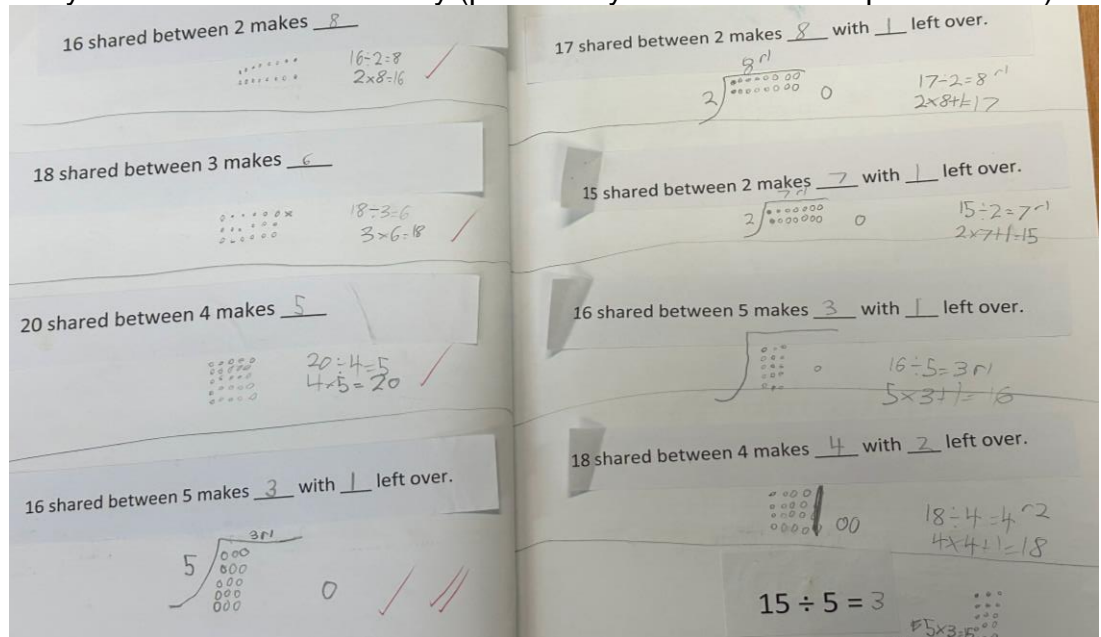 16 shared between 2 makes 8
16÷2=8
2×8=16
18 shared between 3 makes 6
18÷3=6
3×6=18
20 shared between 4 makes 5
20÷4=5
4×5=20
16 shared between 5 makes 3 with 1 left over.
3r1
5
17 shared between 2 makes 8 with 1 left over.
8r1
2
17÷2=8r1
2×8+1=17
15 shared between 2 makes 7 with 1 left over.
7r1
2
15÷2=7r1
2×7+1=15
16 shared between 5 makes 3 with 1 left over.
16÷5=3r1
5×3+1=16
18 shared between 4 makes 4 with 2 left over.
18÷4=4r2
4×4+1=18
15 ÷ 5 = 3
5×3=15